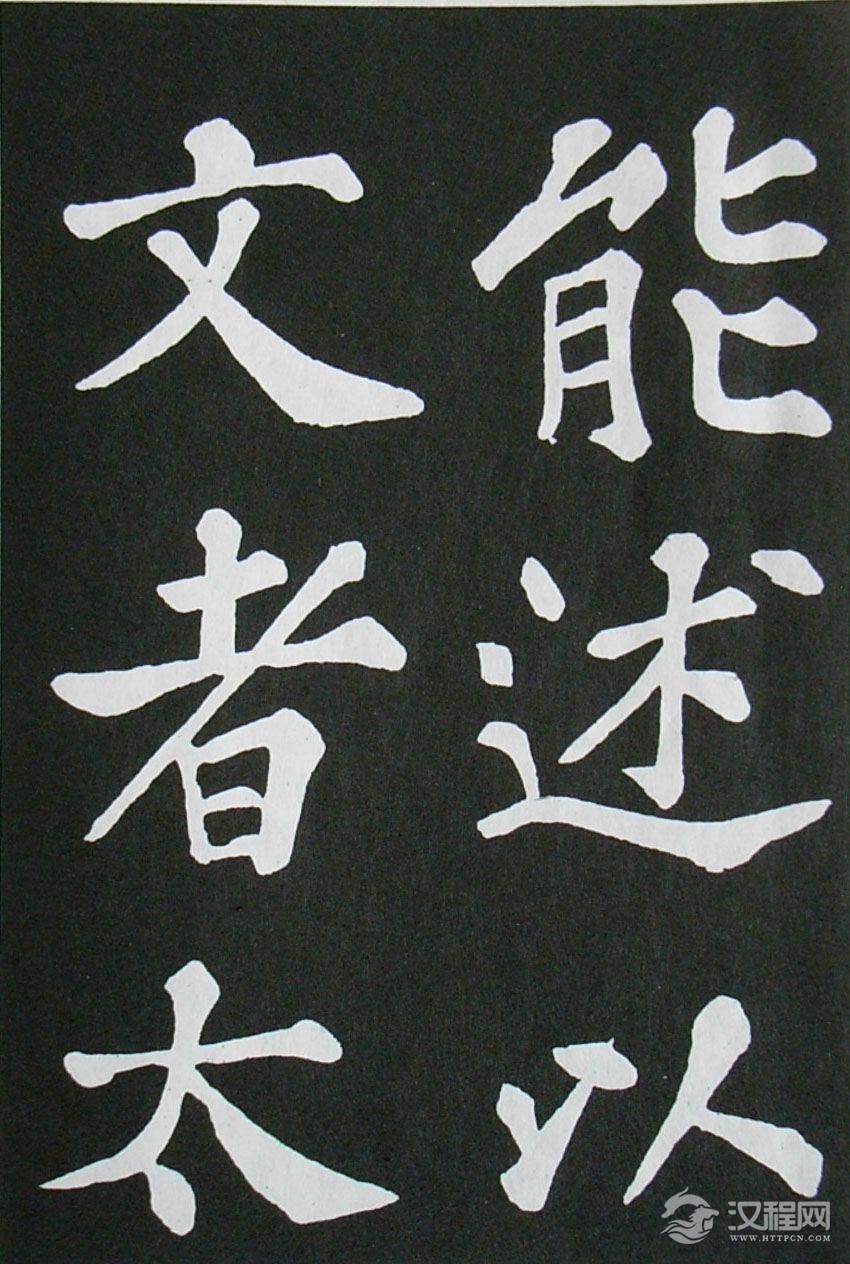 能述以
文者太
汉程网
WWW.HTTPCN.COM